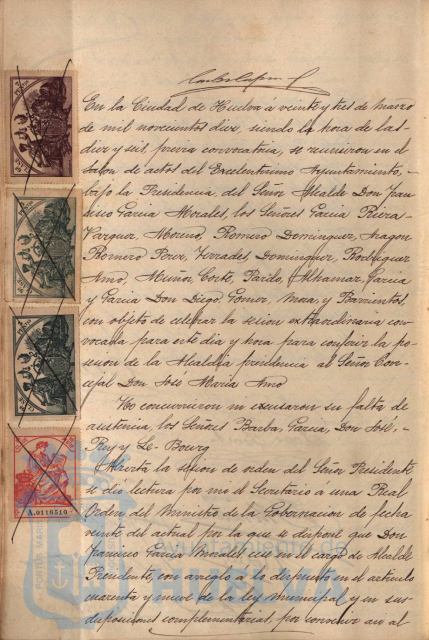 En la Ciudad de Huelva á veinte y tres de Marzo
de mil novecientos diez, siendo la hora de las
diez y seis previa convocatoria, se reunieron en el
Salon de actos del Excelentisimo Ayuntamiento,
bajo la Presidencia del Señor Alcalde Don Fran
cisco Garcia Morales, los Señores Garcia Riera
Vazquez, Moreno, Romero Dominguez, Aragon
Romero Perez, Terrades, Dominguez, Rodriguez
Amo, Muñoz, Corté, Pardo, Alhamar, Garcia
y Garcia Don Diego, Gomez, Mora, y Barrientos,
con objeto de celebrar la sesion extraordinaria con
vocada para este dia y hora para conferir la po
sesion de la Alcaldia presidencia al Señor Con
cejal Don José Maria Amo
No concurrieron ni excusaron su falta de
asistencia, los Señores Barba, Garcia, Don José,
Rey y Le-Bourg
Abierta la sesion de orden del Señor Presidente
se dio lectura por mi el Secretario á una Real
Orden del Ministro de la Gobernacion de fecha
veinte del actual por la que se dispone que Don
Francisco Garcia Morales cese en el cargo de Alcalde
Presidente, con arreglo á lo dispuesto en el articulo
cuarenta y nueve de la ley Municipal y en sus
disposiciones complementarias, por convenir asi al
A.0116510